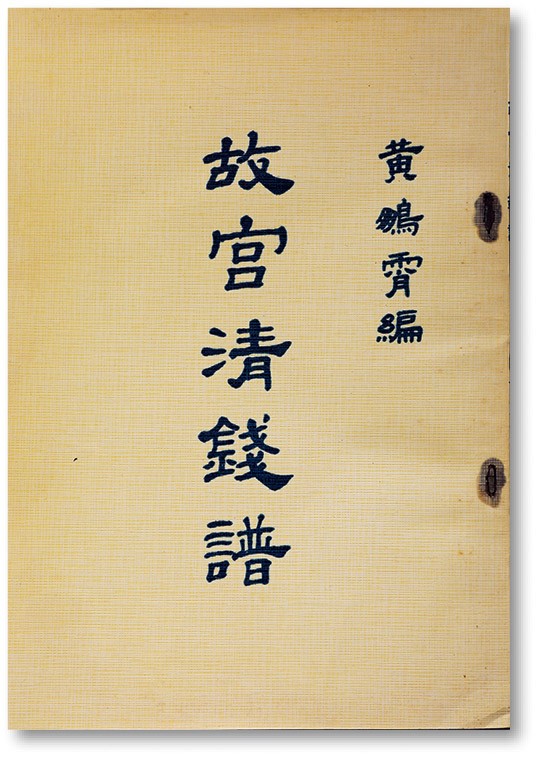 黄鵬霄編
故宮清錢譜